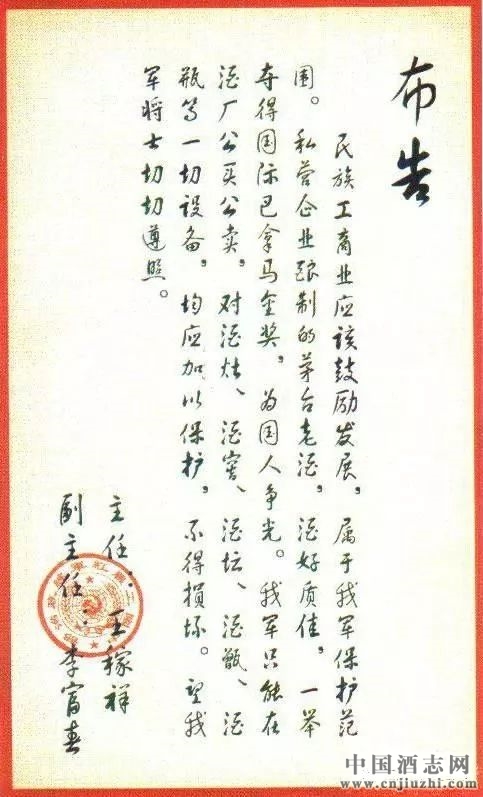 布告
民族工商业应该鼓励发展，属于我军保护范
围。私营企业酿制的茅台老酒，酒好质佳，一举
夺得国际巴拿马金奖，为国人争光。我军只能在
酒厂公买公卖，对酒灶、酒窖、酒坛、酒甑、酒
瓶等一切设备，均应加以保护，不得損坏。望我
军将士切切遵照。
主任：王稼祥
副主任：李富春
中国酒志网
www.cnjiuzhi.com